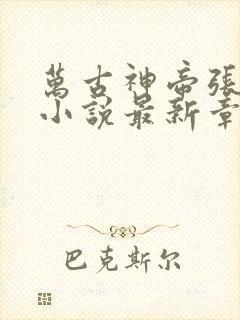 萬古神帝張
小說最新章
巴克斯尔